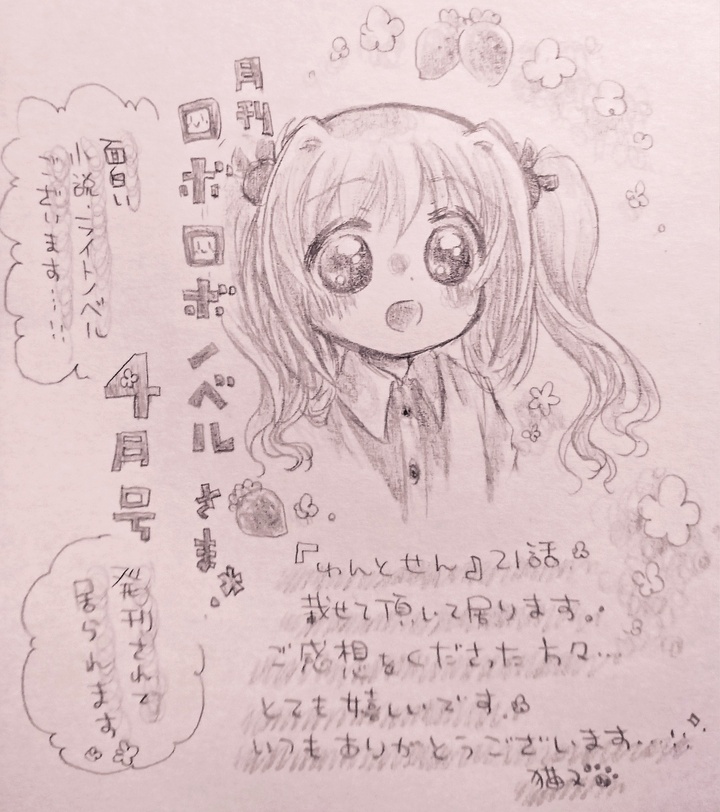 月刊
ロボロボノベルさま
4月号
面白い
小説・ライトノベル
ございます……
発刊されて
居られます
『わんとせん』21話
載せて頂いて居ります。
ご感想をくださった方々…
とても嬉しいです。
いつもありがとうございます……
猫又